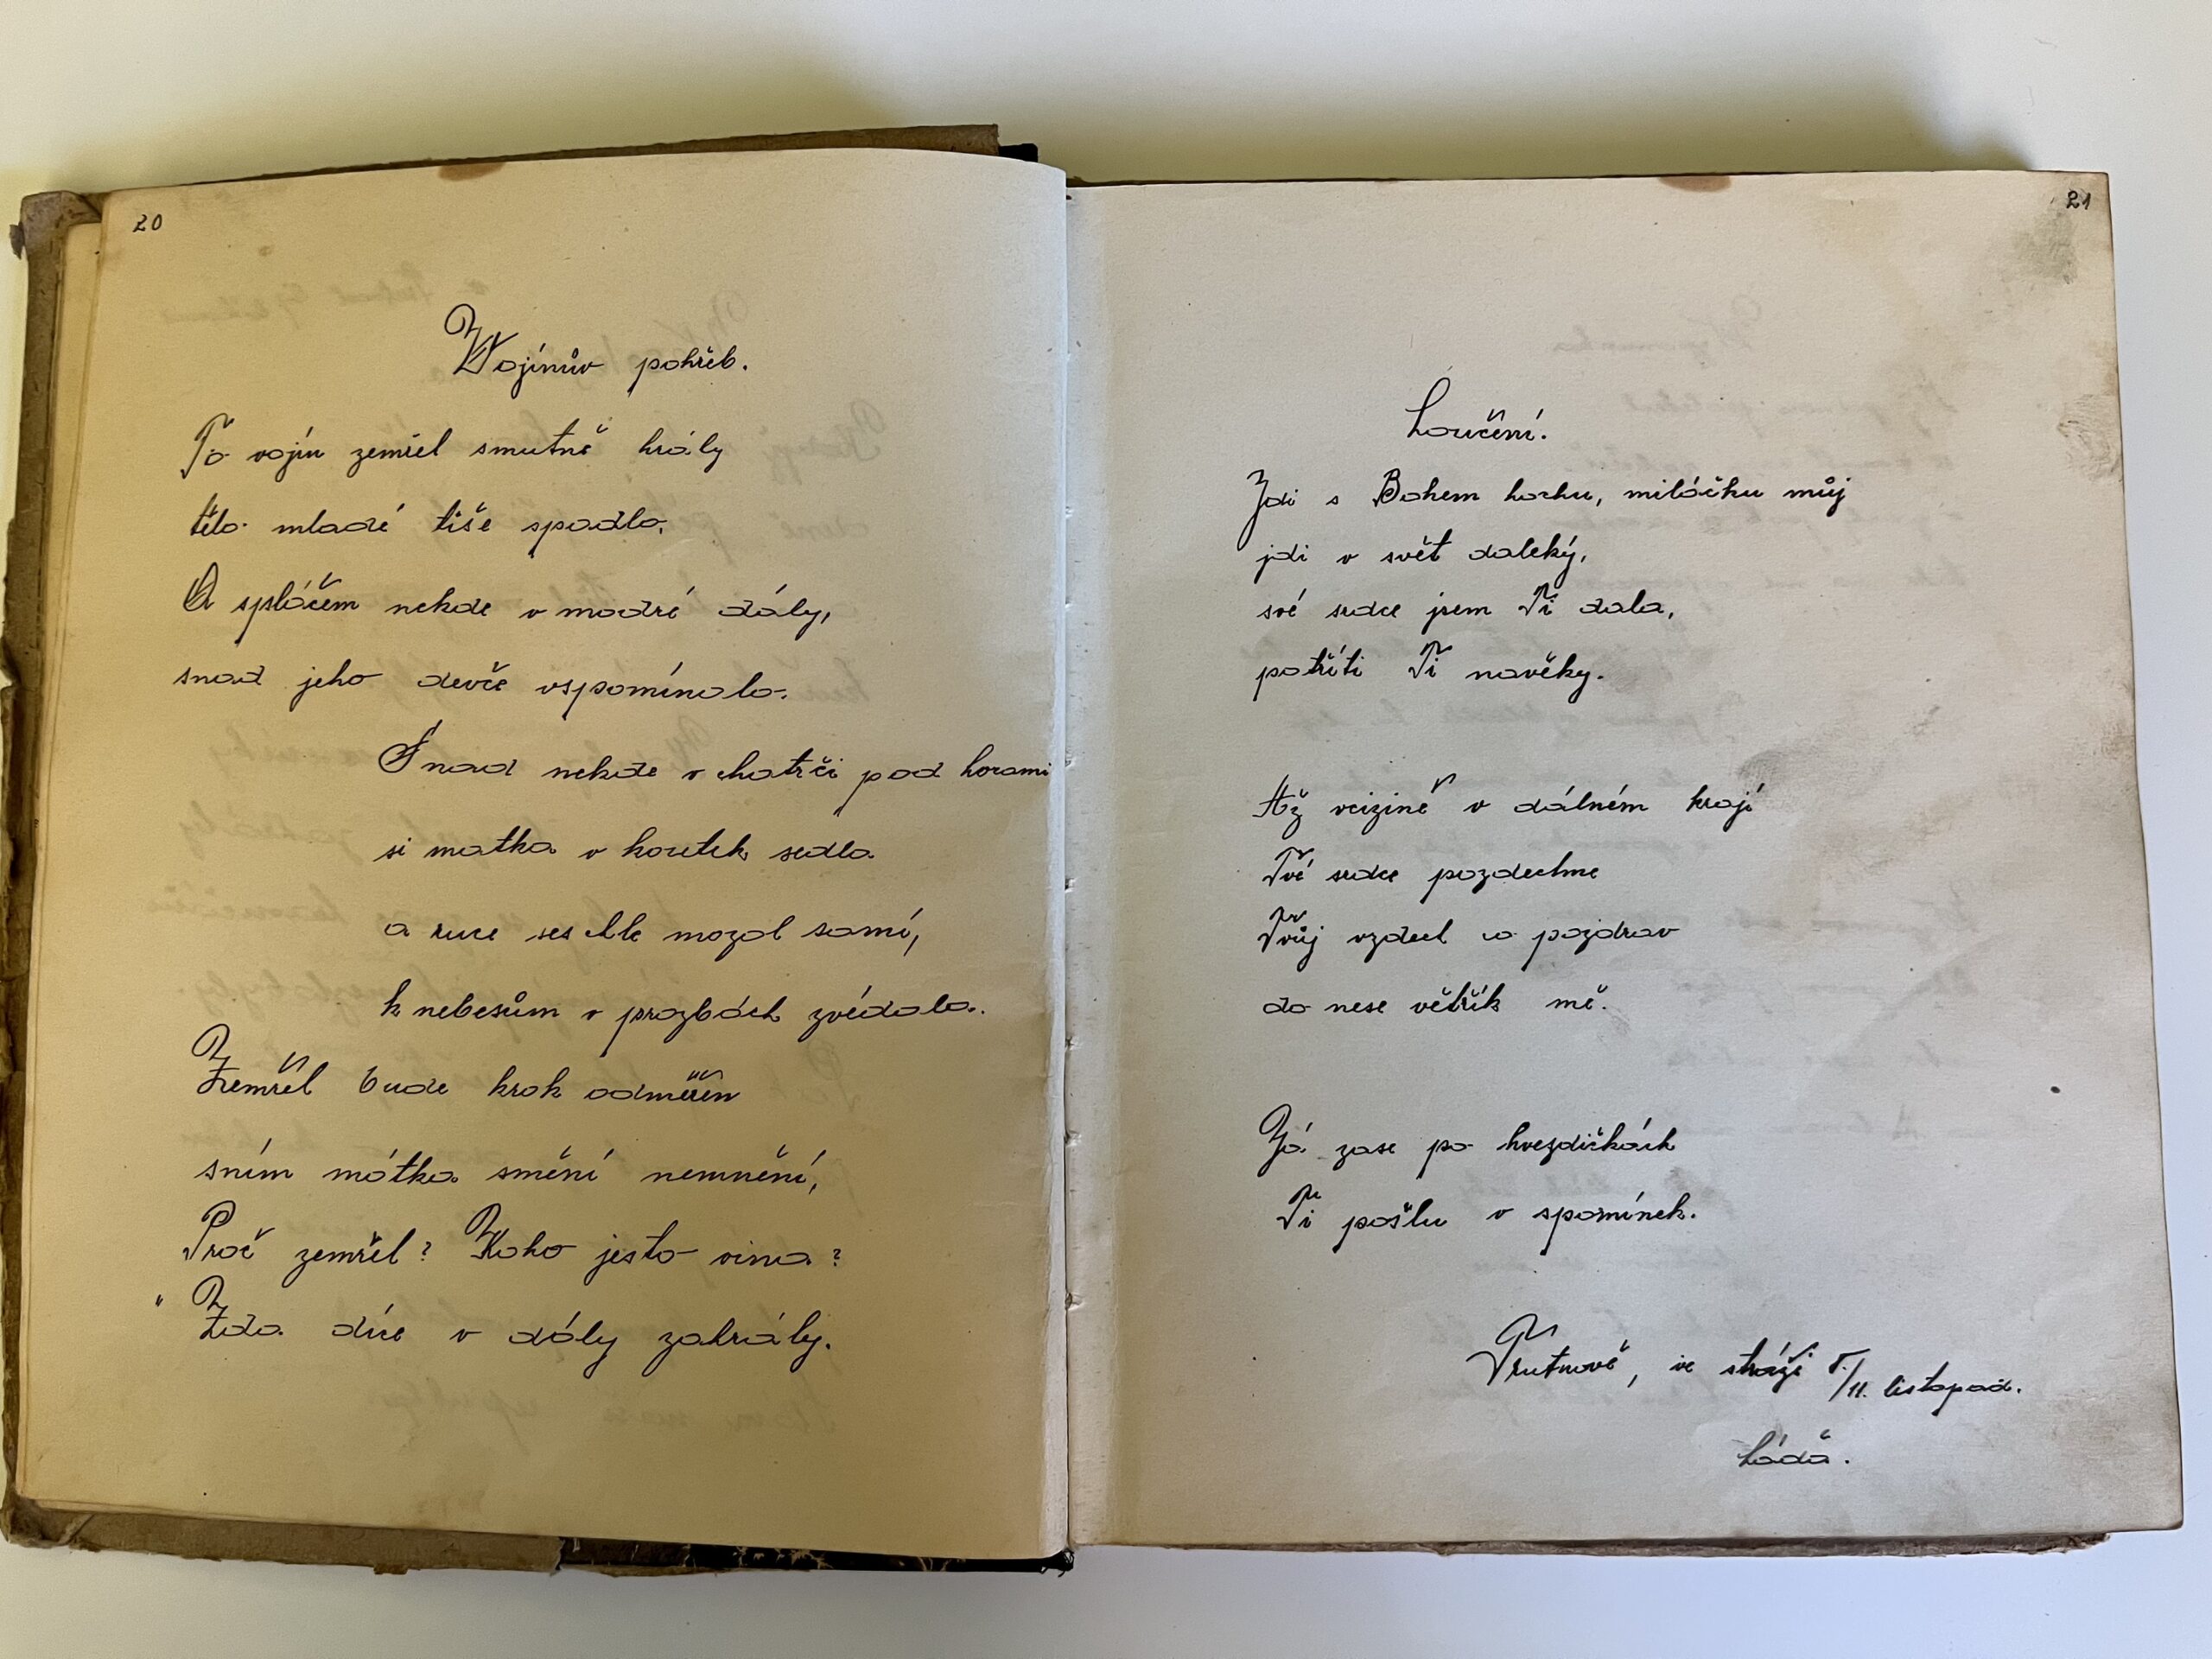 20
Vojínův pohřeb.
To vojín zemřel smutně hrály
tělo mladé tiše spadlo,
A spláčem nekde v modré dály,
snad jeho devče vspomínalo.
Snad nekde v chatrči pod horami
si matka v koutek sedla
a ruce seschle mozol samí,
k nebesům v prozbách zvédala.
Zemřel bude krok odměřen
sním mátka smění nemnění,
Proč zemřel? Koho jesto vina?
" Zda díve v dály zahrály.
21
Loučení.
Jdi s Bohem hochu, miláčku můj
jdi v svět daleký,
své srdce jsem Ti dala,
patříti Ti navěky.
Až vcizině v dálném krají
Tvé srdce pozdechne
Tvůj vzdech a pozdrav
do nese větřík mě.
Já zase po hvezdičkách
Ti pošlu v spomínek.
Trutnově, ve stráži 5./11. listopad.
Láďa.